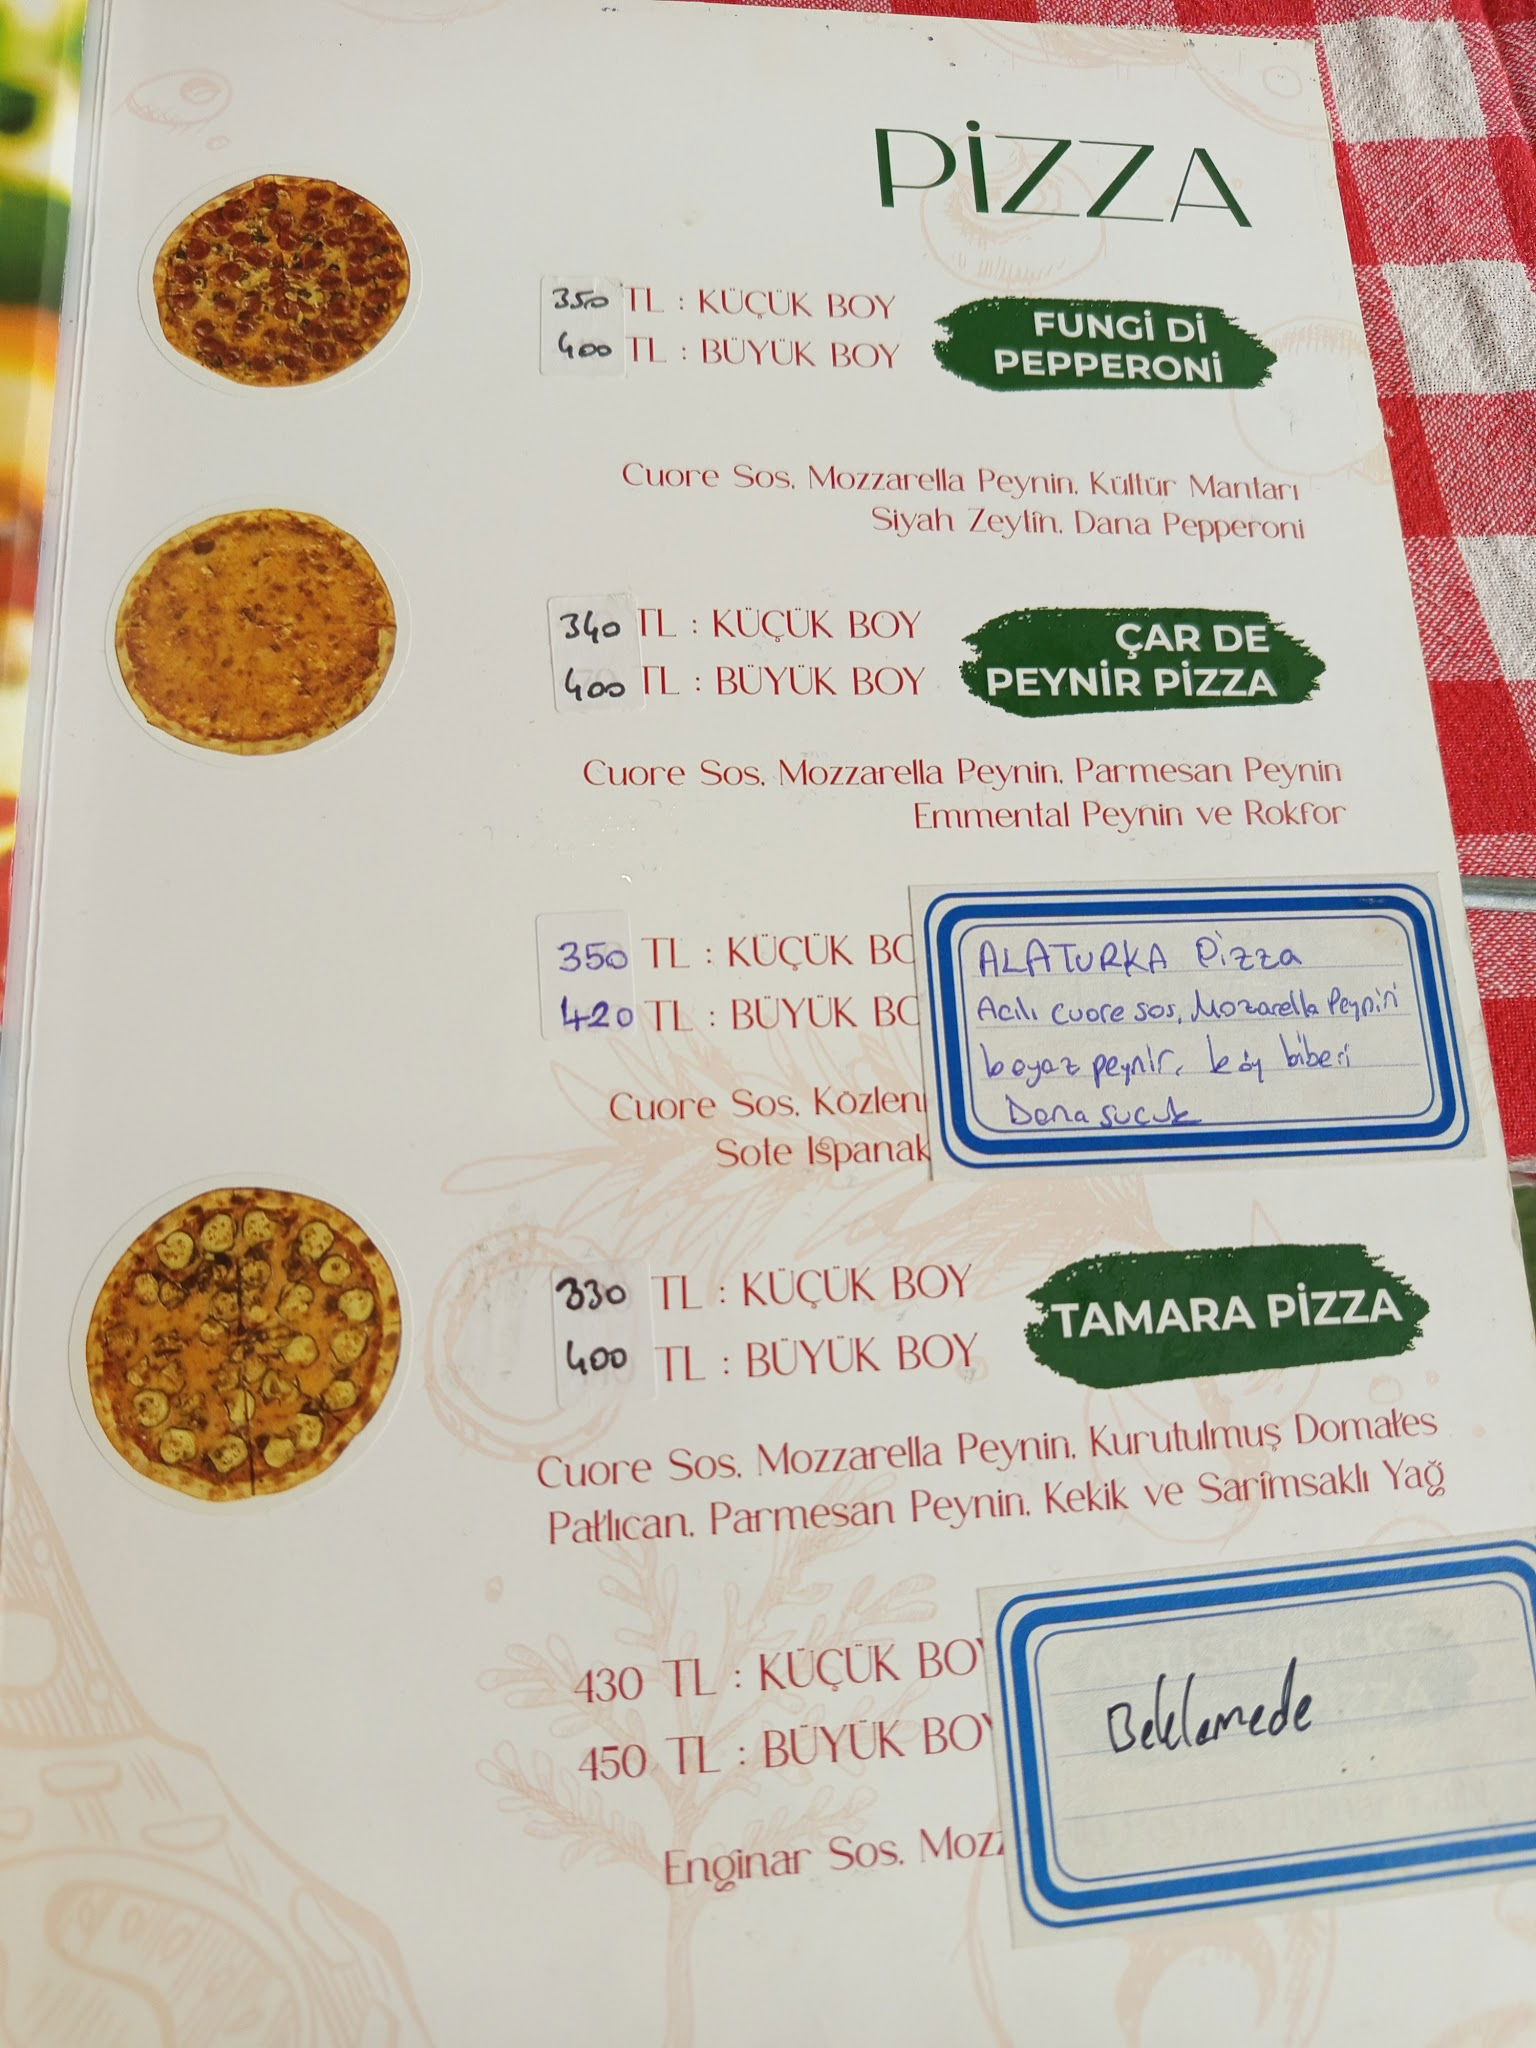 PİZZA
350 TL : KÜÇÜK BOY
400 TL : BÜYÜK BOY
FUNGİ Dİ
PEPPERONİ
Cuore Sos, Mozzarella Peynin, Kültür Mantarı
Siyah Zeytin, Dana Pepperoni
340 TL : KÜÇÜK BOY
400 TL : BÜYÜK BOY
ÇAR DE
PEYNİR PİZZA
Cuore Sos, Mozzarella Peynin, Parmesan Peynin
Emmental Peynin ve Rokfor
350 TL : KÜÇÜK BO
420 TL : BÜYÜK BO
Cuore Sos, Közlen
Sote Ispanak
ALATURKA Pizza
Acılı cuore sos, Mozarella Peyniri
beyaz peynir, köy biberi
Dana sucuk
330 TL : KÜÇÜK BOY
400 TL : BÜYÜK BOY
TAMARA PİZZA
Cuore Sos, Mozzarella Peynin, Kurutulmuş Domates
Patlıcan, Parmesan Peynin, Kekik ve Sarimsaklı Yağ
430 TL : KÜÇÜK BOY
450 TL : BÜYÜK BOY
Enginar Sos, Mozz
Beklemede